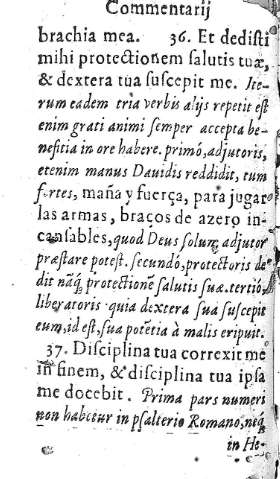 Commentarij
brachia mea. 36. Et dedisti
mihi protectionem salutis tuæ,
& dextera tua suscepit me. Ite-
rum eadem tria verbis alijs repetit est
enim grati animi semper accepta be-
nefitia in ore habere. primò, adjutoris,
etenim manus Dauidis reddidit, tum
fortes, maña y fuerça, para jugar
las armas, braços de azero in-
cansables, quod Deus solum adjutor
præstare potest. secundò, protectoris de-
dit nãq; protectionẽ salutis suæ. tertiò,
liberatoris quia dextera sua suscepit
eum, id est, sua potẽtia à malis eripuit.
37. Disciplina tua correxit me
in finem, & disciplina tua ipsa
me docebit. Prima pars numeri
non habetur in psalterio Romano, neq;
in He-